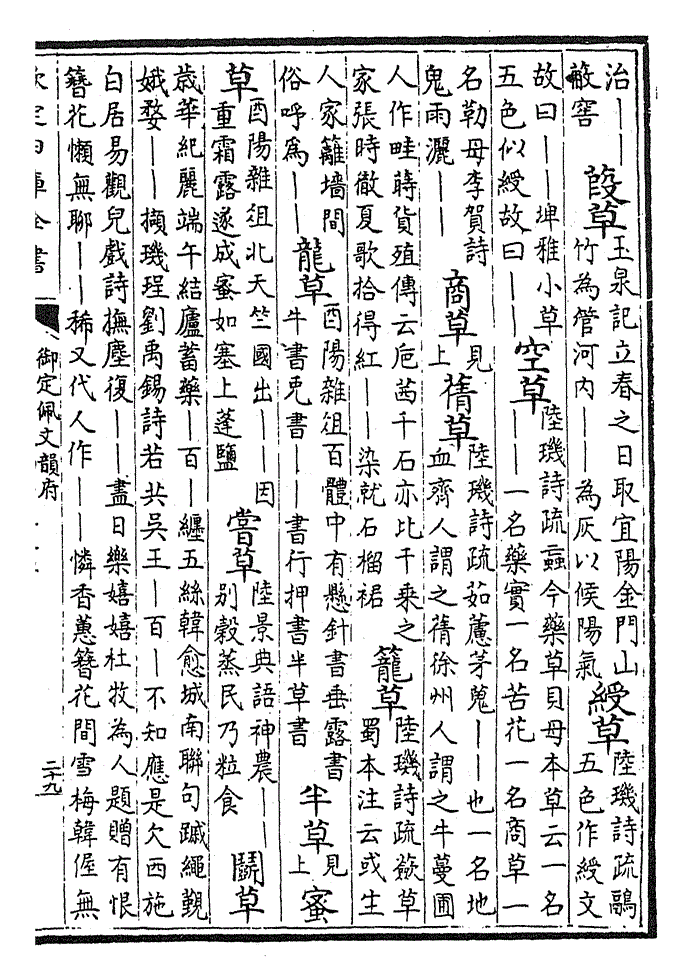 治｜｜
敝窖
葭草
玉泉記立春之日取宜陽金門山
竹為管河内｜｜為灰以候陽氣
綬草
陸璣詩疏鷊
五色作綬文
故曰｜｜埤雅小草
五色似綬故曰｜｜
空草
陸璣詩疏蝱今藥草貝母本草云一名
｜｜一名藥實一名苦花一名商草一
名勒母李賀詩
鬼雨灑｜｜
商草
見
上
蒨草
陸璣詩疏茹藘茅蒐｜｜也一名地
血齊人謂之蒨徐州人謂之牛蔓圃
人作畦蒔貨殖傳云巵茜千石亦比千乘之
家張時徹夏歌拾得紅｜｜染就石榴裙
籠草
陸璣詩疏蘞草
蜀本注云或生
人家籬墻間
俗呼為｜｜
龍草
酉陽雜俎百體中有懸針書垂露書
牛書兎書｜｜書行押書半草書
半草
見
上
蜜
草
酉陽雜俎北天竺國出｜｜因
重霜露遂成蜜如塞上蓬鹽
嘗草
陸景典語神農｜｜
别穀蒸民乃粒食
鬭草
歲華紀麗端午結廬蓄藥｜百｜纏五絲韓愈城南聯句蹙繩覲
娥婺｜｜擷璣珵劉禹錫詩若共吳王｜百｜不知應是欠西施
白居易觀兒戲詩撫塵復｜｜盡日樂嬉嬉杜牧為人題贈有恨
簪花懶無聊｜｜稀又代人作｜｜憐香蕙簪花間雪梅韓偓無
欽定四庫全書
御定佩文韻府
二十九